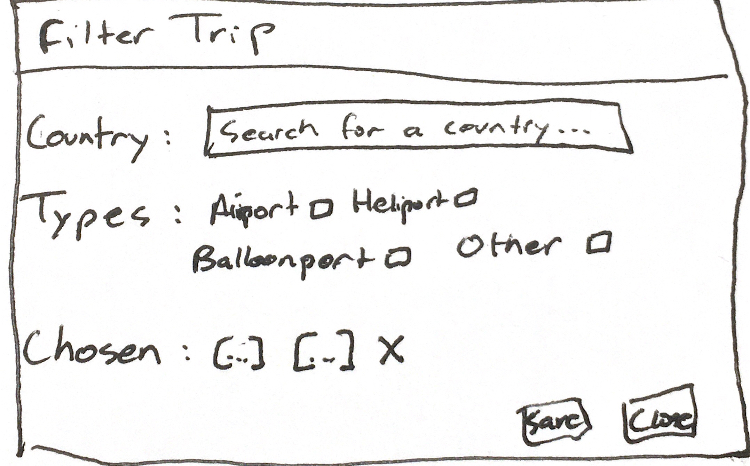 Filter Trip
Country : Search for a country...
Types : Airport Heliport
Balloonport Other
Chosen : [...] [...] X
Save Close